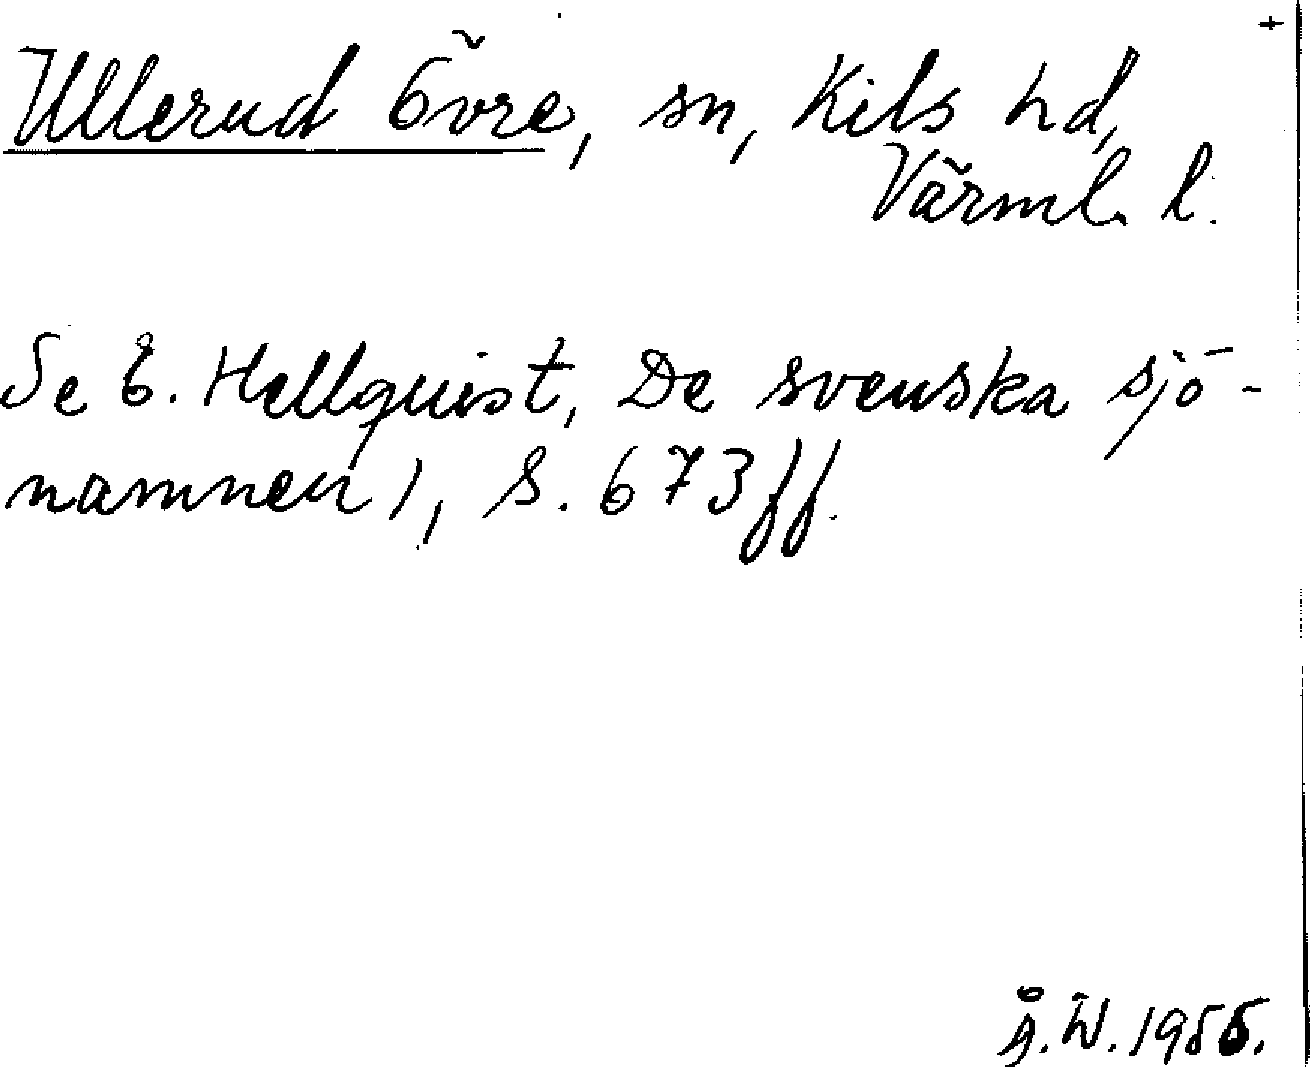 +
Ullerud Övre, sn, Kils hd,
Värml. l.
Se E. Hellquist, De svenska sjö-
namnen 1, S. 673 ff.
Å. W. 1955.